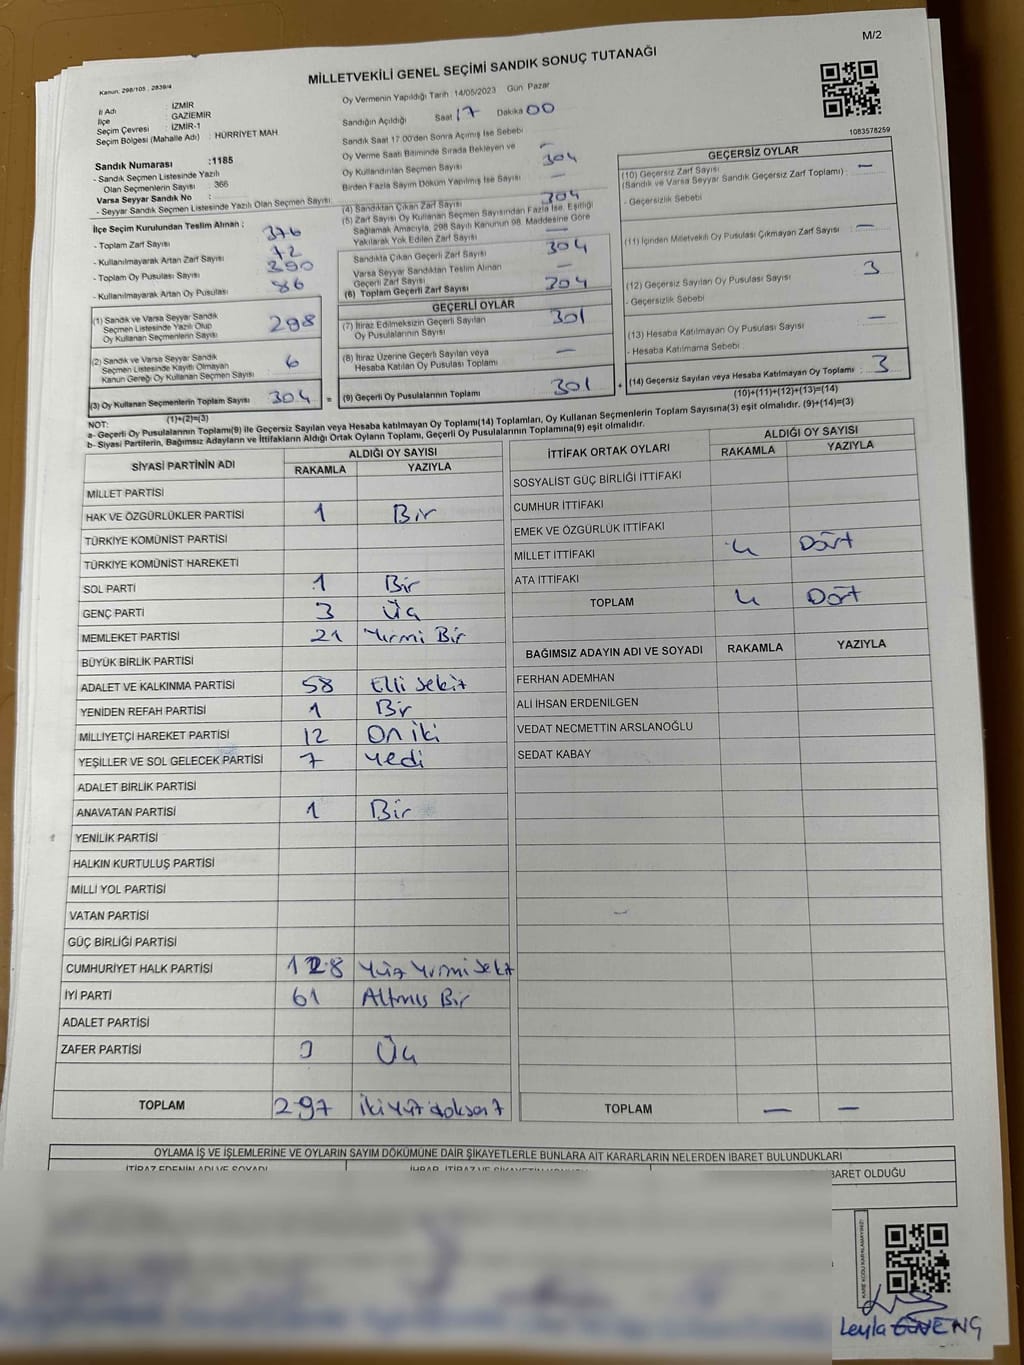 M/2
MİLLETVEKİLİ GENEL SEÇİMİ SANDIK SONUÇ TUTANAĞI
Kanun, 298/105 , 2839/4
İl Adı : İZMİR
İlçe : GAZİEMİR
Seçim Çevresi : İZMİR-1
Seçim Bölgesi (Mahalle Adı) : HÜRRİYET MAH
Oy Vermenin Yapıldığı Tarih : 14/05/2023 Gün Pazar
Sandığın Açıldığı Saat 17 Dakika 00
Sandık Saat 17.00'den Sonra Açılmış İse Sebebi
Oy Verme Saati Bitiminde Sırada Bekleyen ve
Oy Kullandırılan Seçmen Sayısı 304
Birden Fazla Sayım Döküm Yapılmış İse Sayısı : —
1083578259
Sandık Numarası :1185
- Sandık Seçmen Listesinde Yazılı
Olan Seçmenlerin Sayısı : 366
Varsa Seyyar Sandık No :
- Seyyar Sandık Seçmen Listesinde Yazılı Olan Seçmen Sayısı:
İlçe Seçim Kurulundan Teslim Alınan :
- Toplam Zarf Sayısı 376
- Kullanılmayarak Artan Zarf Sayısı 72
- Toplam Oy Pusulası Sayısı 390
- Kullanılmayarak Artan Oy Pusulası 86
(1) Sandık ve Varsa Seyyar Sandık
Seçmen Listesinde Yazılı Olup
Oy Kullanan Seçmenlerin Sayısı 298
(2) Sandık ve Varsa Seyyar Sandık
Seçmen Listesinde Kayıtlı Olmayan
Kanun Gereği Oy Kullanan Seçmen Sayısı : 6
(3) Oy Kullanan Seçmenlerin Toplam Sayısı 304 =
(1)+(2)=(3)
(4) Sandıktan Çıkan Zarf Sayısı 304
(5) Zarf Sayısı Oy Kullanan Seçmen Sayısından Fazla İse, Eşitliği
Sağlamak Amacıyla, 298 Sayılı Kanunun 98. Maddesine Göre
Yakılarak Yok Edilen Zarf Sayısı —
Sandıkta Çıkan Geçerli Zarf Sayısı 304
Varsa Seyyar Sandıktan Teslim Alınan
Geçerli Zarf Sayısı —
(6) Toplam Geçerli Zarf Sayısı 304
GEÇERLİ OYLAR
(7) İtiraz Edilmeksizin Geçerli Sayılan
Oy Pusulalarının Sayısı 301
(8) İtiraz Üzerine Geçerli Sayılan veya
Hesaba Katılan Oy Pusulası Toplamı —
(9) Geçerli Oy Pusulalarının Toplamı 301 +
GEÇERSİZ OYLAR
(10) Geçersiz Zarf Sayısı
(Sandık ve Varsa Seyyar Sandık Geçersiz Zarf Toplamı) : —
- Geçersizlik Sebebi
(11) İçinden Milletvekili Oy Pusulası Çıkmayan Zarf Sayısı : —
(12) Geçersiz Sayılan Oy Pusulası Sayısı : 3
- Geçersizlik Sebebi
(13) Hesaba Katılmayan Oy Pusulası Sayısı : —
- Hesaba Katılmama Sebebi :
(14) Geçersiz Sayılan veya Hesaba Katılmayan Oy Toplamı : 3
(10)+(11)+(12)+(13)=(14)
NOT:
a- Geçerli Oy Pusulalarının Toplamı(9) ile Geçersiz Sayılan veya Hesaba katılmayan Oy Toplamı(14) Toplamları, Oy Kullanan Seçmenlerin Toplam Sayısına(3) eşit olmalıdır. (9)+(14)=(3)
b- Siyasi Partilerin, Bağımsız Adayların ve İttifakların Aldığı Ortak Oyların Toplamı, Geçerli Oy Pusulalarının Toplamına(9) eşit olmalıdır.
SİYASİ PARTİNİN ADI ALDIĞI OY SAYISI
RAKAMLA YAZIYLA
MİLLET PARTİSİ
HAK VE ÖZGÜRLÜKLER PARTİSİ 1 Bir
TÜRKİYE KOMÜNİST PARTİSİ
TÜRKİYE KOMÜNİST HAREKETİ
SOL PARTİ 1 Bir
GENÇ PARTİ 3 Üç
MEMLEKET PARTİSİ 21 Yirmi Bir
BÜYÜK BİRLİK PARTİSİ
ADALET VE KALKINMA PARTİSİ 58 Elli sekiz
YENİDEN REFAH PARTİSİ 1 Bir
MİLLİYETÇİ HAREKET PARTİSİ 12 On iki
YEŞİLLER VE SOL GELECEK PARTİSİ 7 Yedi
ADALET BİRLİK PARTİSİ
ANAVATAN PARTİSİ 1 Bir
YENİLİK PARTİSİ
HALKIN KURTULUŞ PARTİSİ
MİLLİ YOL PARTİSİ
VATAN PARTİSİ
GÜÇ BİRLİĞİ PARTİSİ
CUMHURİYET HALK PARTİSİ 128 Yüz Yirmi sekz
İYİ PARTİ 61 Altmış Bir
ADALET PARTİSİ
ZAFER PARTİSİ 3 Üç
TOPLAM 297 İki yüz doksan 7
İTTİFAK ORTAK OYLARI ALDIĞI OY SAYISI
RAKAMLA YAZIYLA
SOSYALİST GÜÇ BİRLİĞİ İTTİFAKI
CUMHUR İTTİFAKI
EMEK VE ÖZGÜRLÜK İTTİFAKI
MİLLET İTTİFAKI 4 Dört
ATA İTTİFAKI
TOPLAM 4 Dört
BAĞIMSIZ ADAYIN ADI VE SOYADI RAKAMLA YAZIYLA
FERHAN ADEMHAN
ALİ İHSAN ERDENİLGEN
VEDAT NECMETTİN ARSLANOĞLU
SEDAT KABAY
TOPLAM — —
OYLAMA İŞ VE İŞLEMLERİNE VE OYLARIN SAYIM DÖKÜMÜNE DAİR ŞİKAYETLERLE BUNLARA AİT KARARLARIN NELERDEN İBARET BULUNDUKLARI
İTİRAZ EDENİN ADI VE SOYADI
BARET OLDUĞU
KARE KODU KARALAMAYINIZ!
Leyla GÜVENÇ